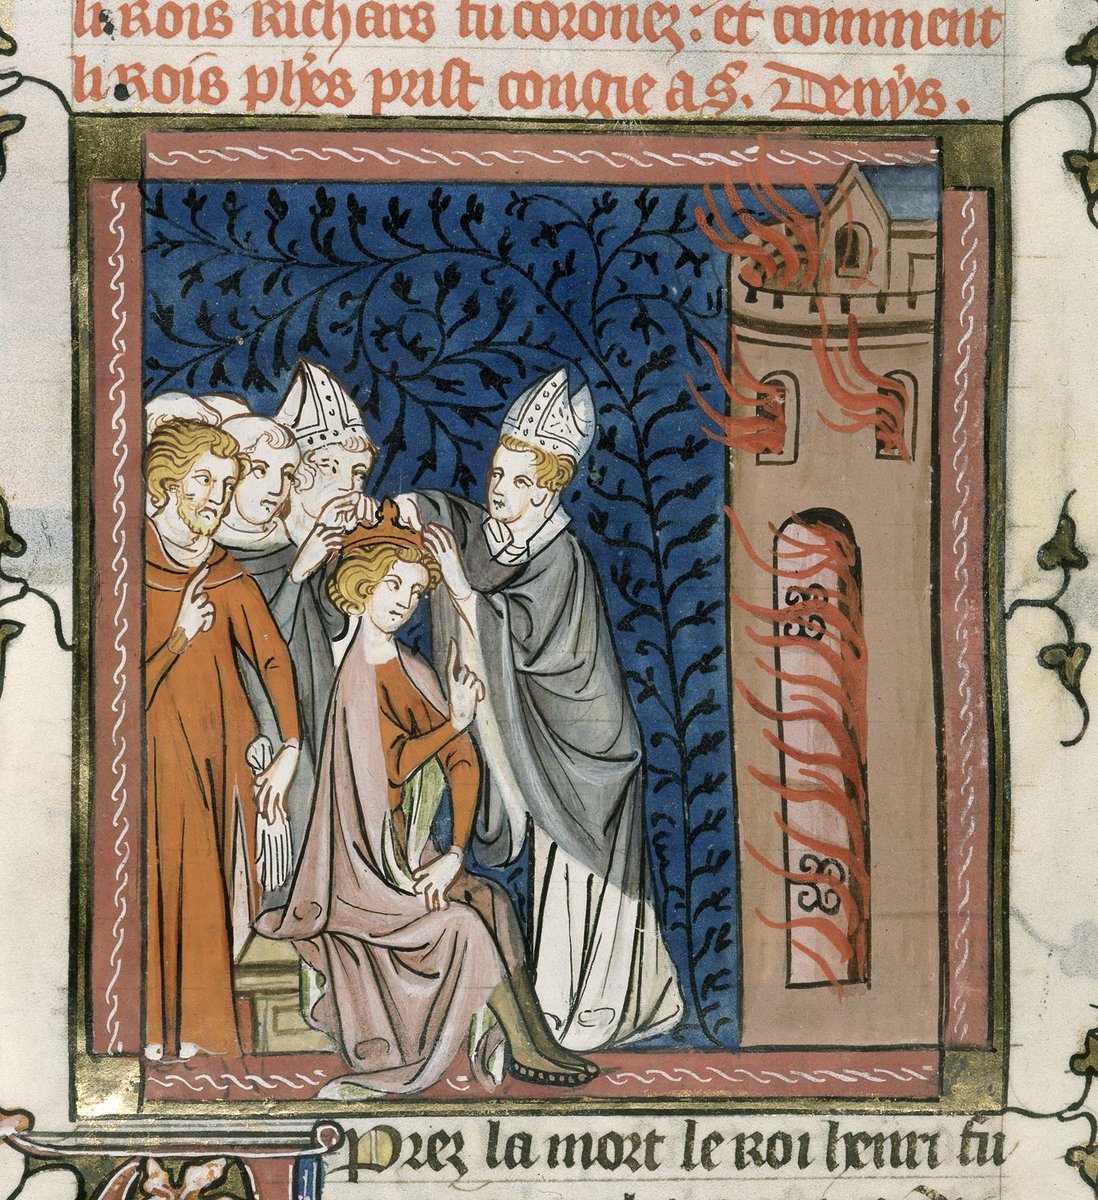 li rois richars fu coronez: et comment
li rois phẽs prist congie a .S. Denys.
Prez la mort le roi henri fu